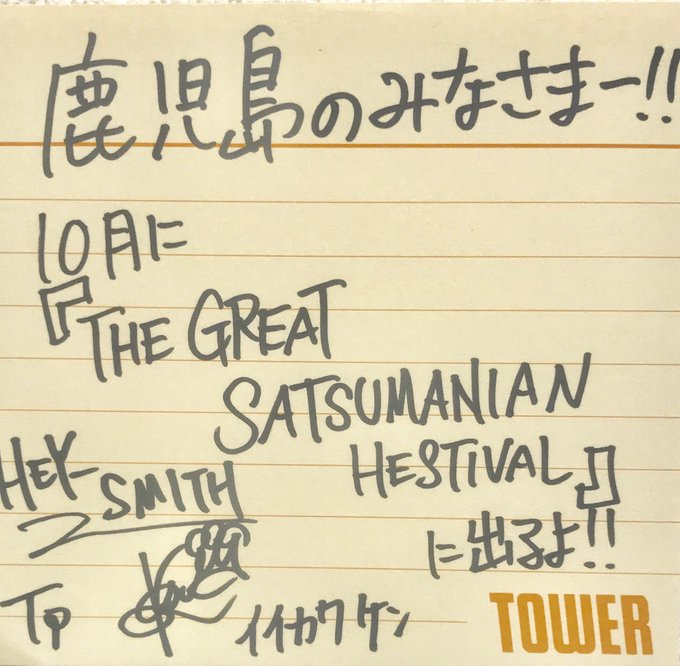 鹿児島のみなさまー!!
10月に
『THE GREAT
SATSUMANIAN
HESTIVAL』
に出るよ!!
HEY-
SMITH
Tp
イイカワケン
TOWER